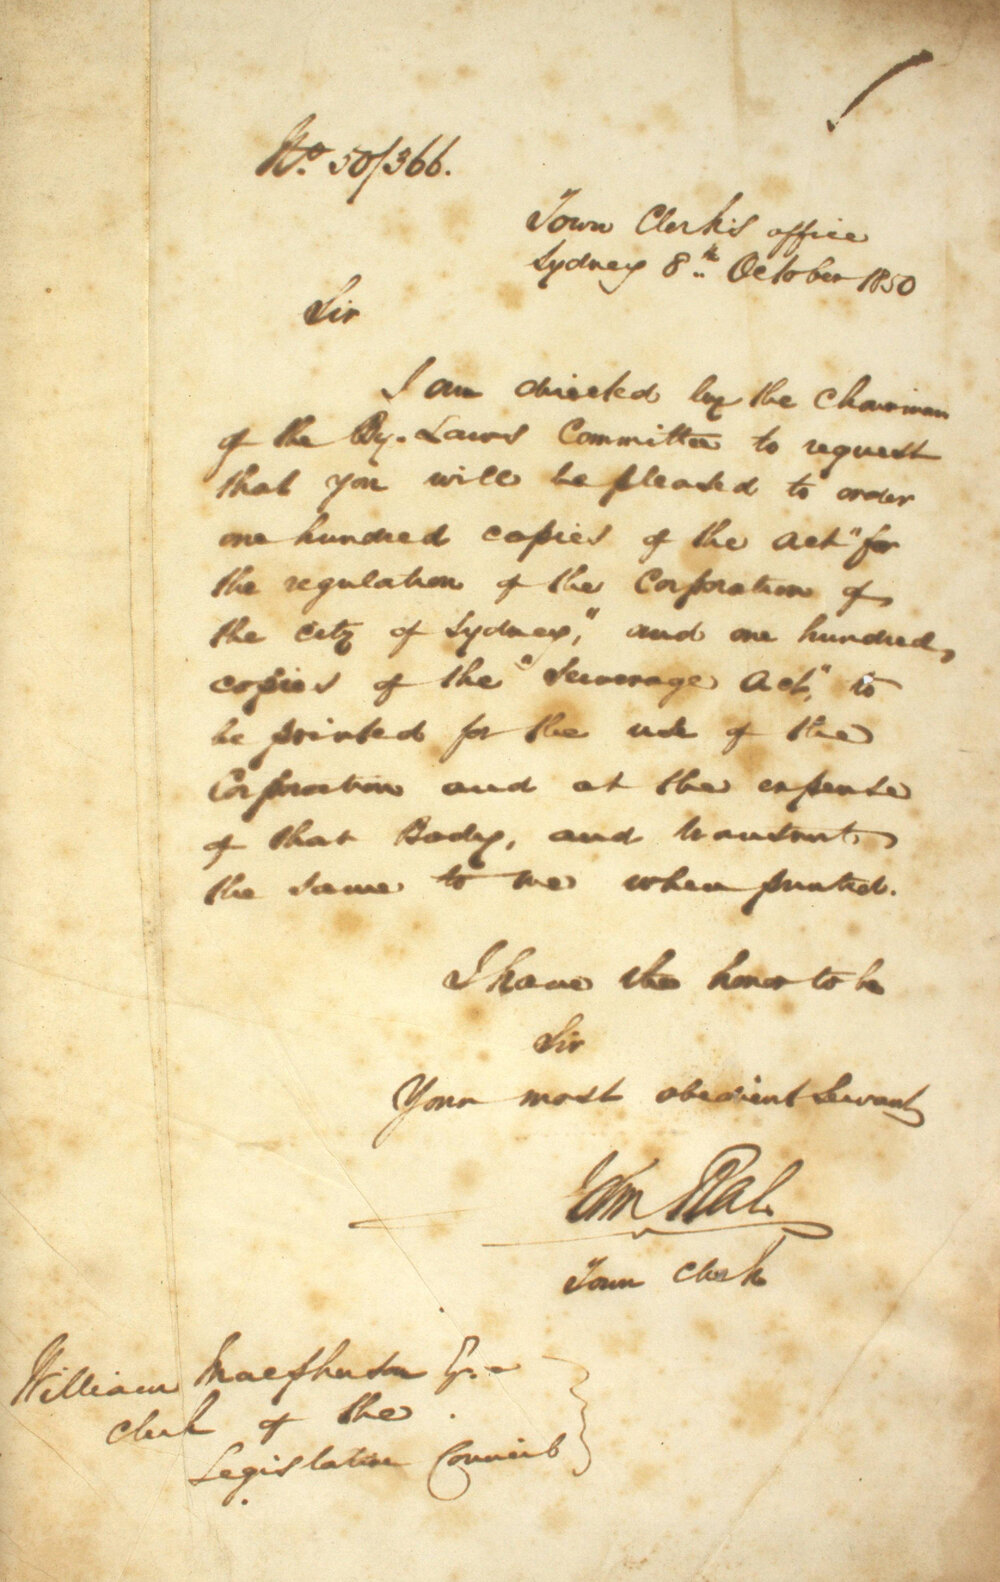 No. 50/366.
Town Clerk's office
Sydney 8th October 1850
Sir
I am directed by the Chairman
of the By-Laws Committee to request
that you will be pleased to order
one hundred copies of the Act "for
the regulation of the Corporation of
the City of Sydney," and one hundred
copies of the "Sewerage Act," to
be printed for the use of the
Corporation and at the expense
of that Body, and transmit
the same to me when printed.
I have the honor to be
Sir
Your most obedient Servant
Jon Rae
Town Clerk
William Macpherson Esqre
Clerk of the
Legislative Council